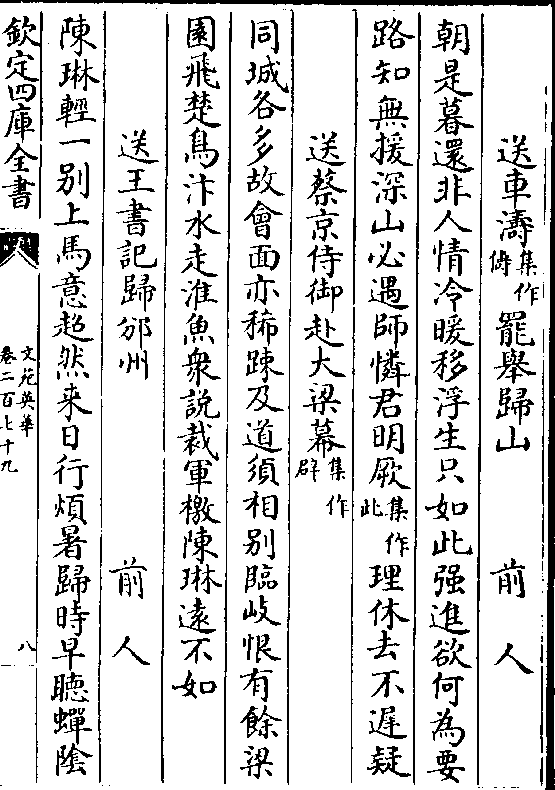 送車濤集作儔罷舉歸山　前人
朝是暮還非人情冷暖移浮生只如此强進欲何為要
路知無援深山必遇師憐君明厥集作此理休去不遲疑
送蔡京侍御赴大梁幕集作辟
同城各多故會面亦稀疎及道須相别臨岐恨有餘梁
園飛楚鳥汴水走淮魚衆說裁軍檄陳琳遠不如
送王書記歸邠州　前人
陳琳輕一别上馬意超然来日行煩暑歸時早聽蟬陰
欽定四庫全書
文苑英華
卷二百七十九
八